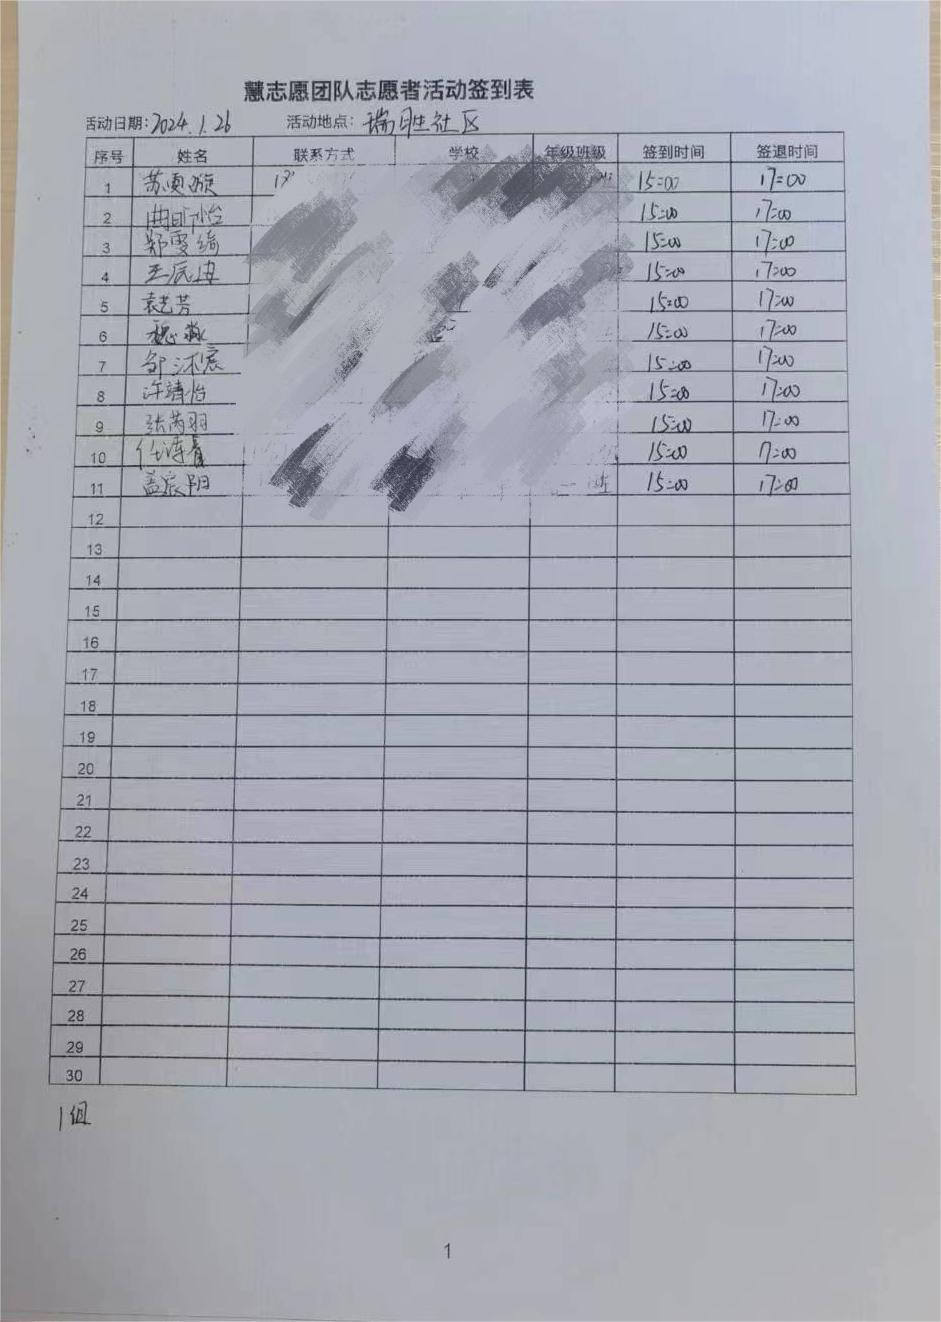 慧志愿团队志愿者活动签到表
活动日期:2024.1.26 活动地点:瑞胜社区
序号 姓名 联系方式 学校 年级班级 签到时间 签退时间
1 苏 15:00 17:00
2 曲 怡 15:00 17:00
3 郑雯绮 15:00 17:00
4 王辰 15:00 17:00
5 袁艺芳 15:00 17:00
6 魏 15:00 17:00
7 邹沐宸 15:00 17:00
8 许靖怡 15:00 17:00
9 张芮羽 15:00 17:00
10 任 15:00 17:00
11 孟宸阳 15:00 17:00
12
13
14
15
16
17
18
19
20
21
22
23
24
25
26
27
28
29
30
1组
1